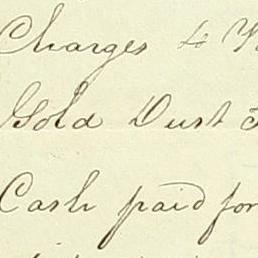 Charges to
Gold Dust
Cash paid for